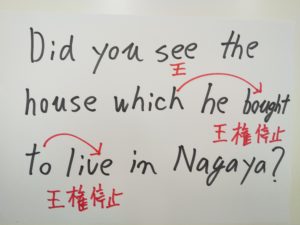 Did you see the
王
house which he bought
王権停止
to live in Nagaya?
王権停止